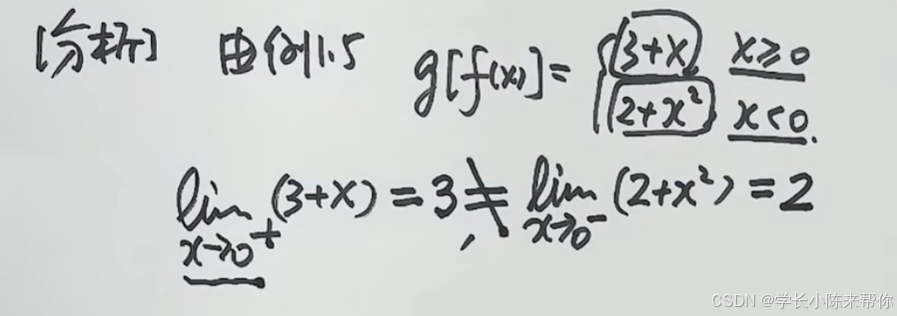 [分析] 由例1.5 g[f(x)] = { 3+x x≥0
2+x² x<0.
lim (3+x) = 3 ≠ lim (2+x²) = 2
x→0⁺ x→0⁻
CSDN @学长小陈来帮你